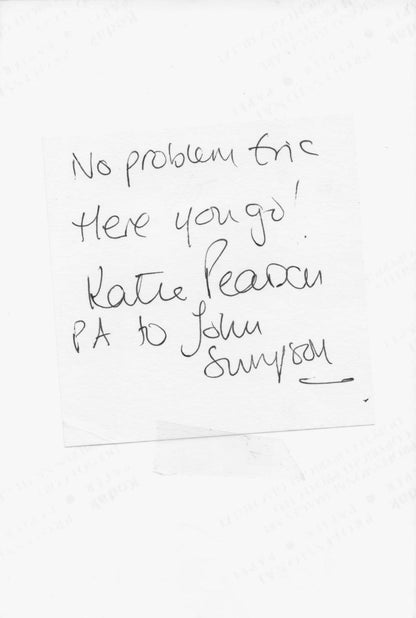 No problem Eric
Here you go!
Katie Pearson
PA to John
Simpson